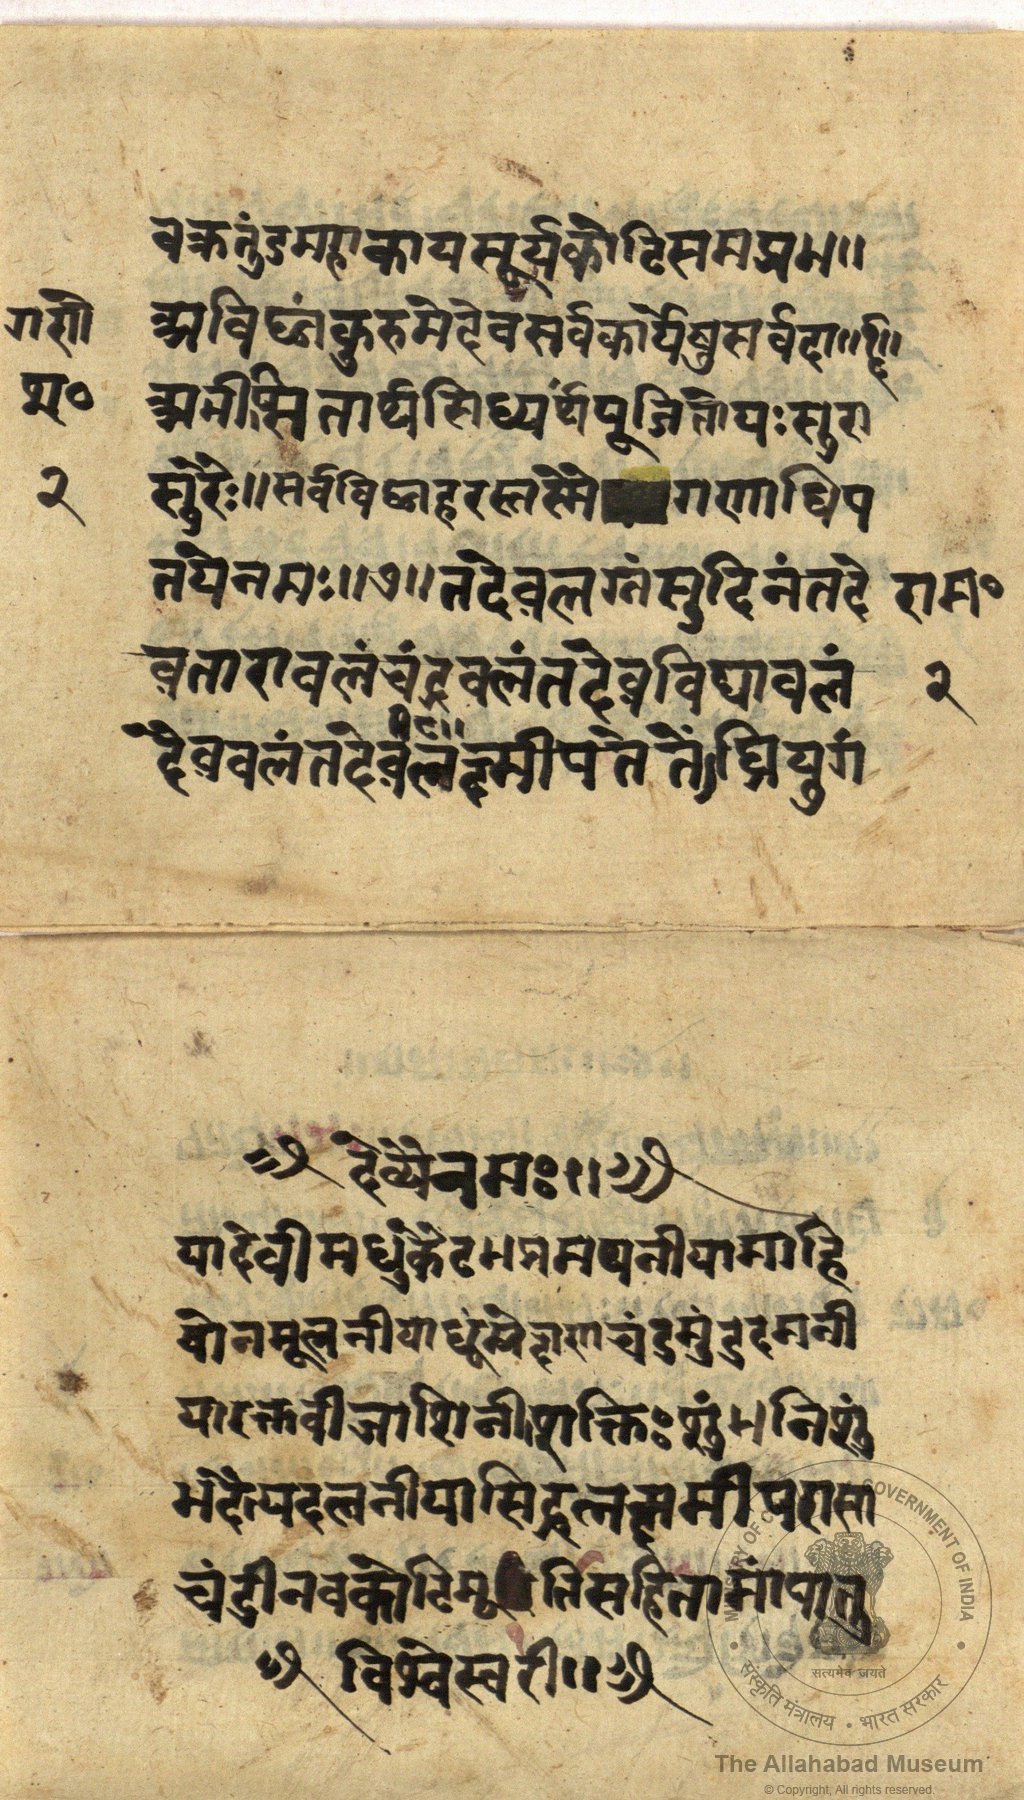 वक्रतुंडमहाकायसूर्यकोटिसमप्रभ॥
गणे
अविघ्नंकुरुमेदेवसर्वकार्येषुसर्वदा॥
अभीप्सितार्थसिध्यर्थंपूजितोयःसुरा
२
सुरैः॥सर्वविघ्नहरस्तस्मै गणाधिप
तयेनमः॥१॥तदेवलग्नंसुदिनंतदे
राम॰
वताराबलंचंद्रबलंतदेवविद्याबलं
२
दैवबलंतदेव लक्ष्मीपतेतेंघ्रियुगं
देव्यैनमः॥
यादेवीमधुकैटभप्रमथनीयामाहि
षोनमूलनीयाधूम्रेक्षणचंडमुंडदमनी
यारक्तबीजाशिनीशक्तिःशुंभनिशुं
भदैत्यदलनीयासिद्धलक्ष्मीपरासा
चंडीनवकोटिमू तिसहितामांपातु
विश्वेस्वरी॥
MINISTRY OF CULTURE GOVERNMENT OF INDIA
सत्यमेव जयते
संस्कृति मंत्रालय • भारत सरकार
The Allahabad Museum
© Copyright, All rights reserved.